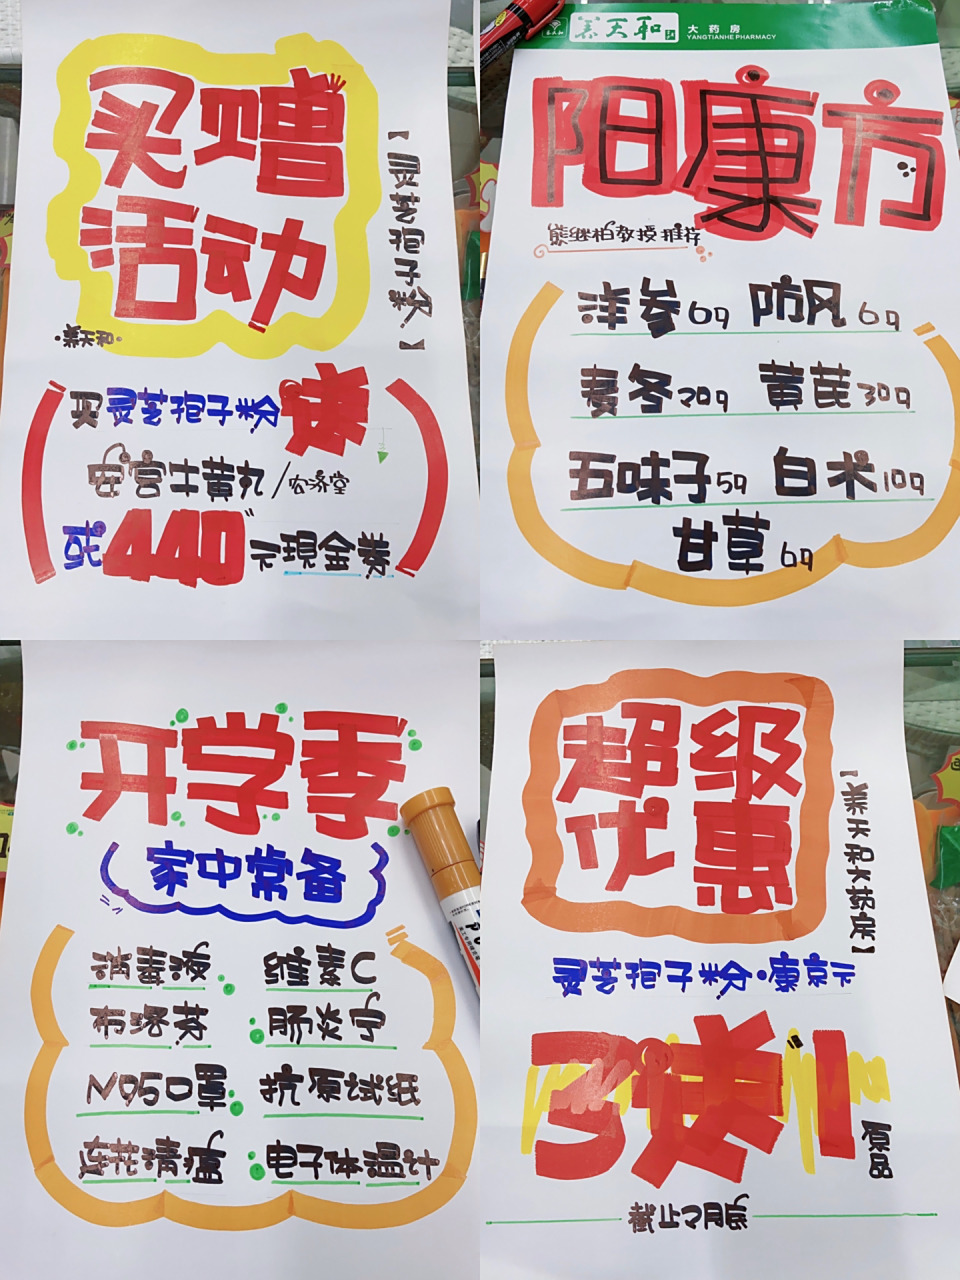 买赠
活动
·养天和·
【灵芝孢子粉】
买灵芝孢子粉送
安宫牛黄丸/宏济堂
或440元现金券
养天和 大药房
YANGTIANHE PHARMACY
阳康方
熊继柏教授推荐
洋参6g 防风6g
麦冬20g 黄芪30g
五味子5g 白术10g
甘草6g
开学季
家中常备
消毒液 维素C
布洛芬 肠炎宁
N95口罩 抗原试纸
连花清瘟 电子体温计
超级
优惠
【养天和大药房】
灵芝孢子粉·康京元
3送1
原品
截止2月底